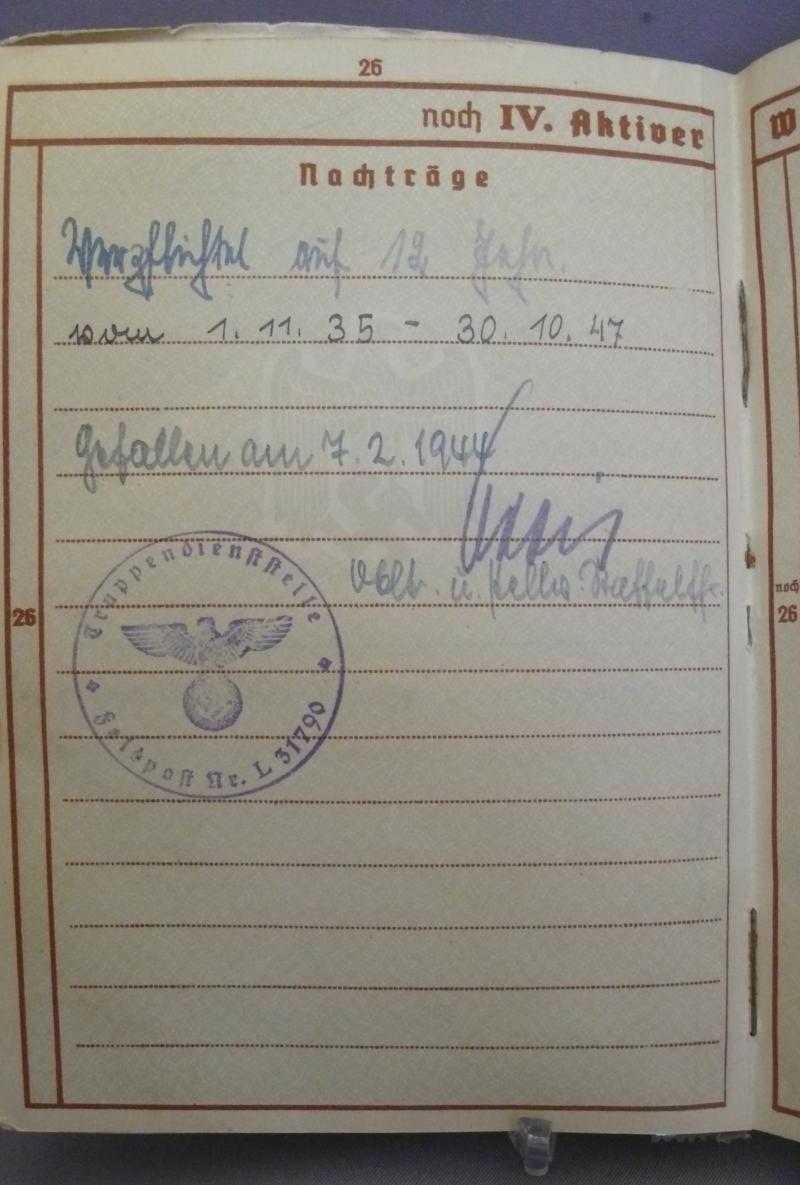 26
noch IV. Aktiver
Nachträge
Verpflichtet auf 12 Jahr.
vom 1. 11. 35 - 30. 10. 47
Gefallen am 7. 2. 1944
Oblt. u. stellv. Staffelf.
Truppendienststelle
Feldpost Nr. L 31790
26
W
noch
26